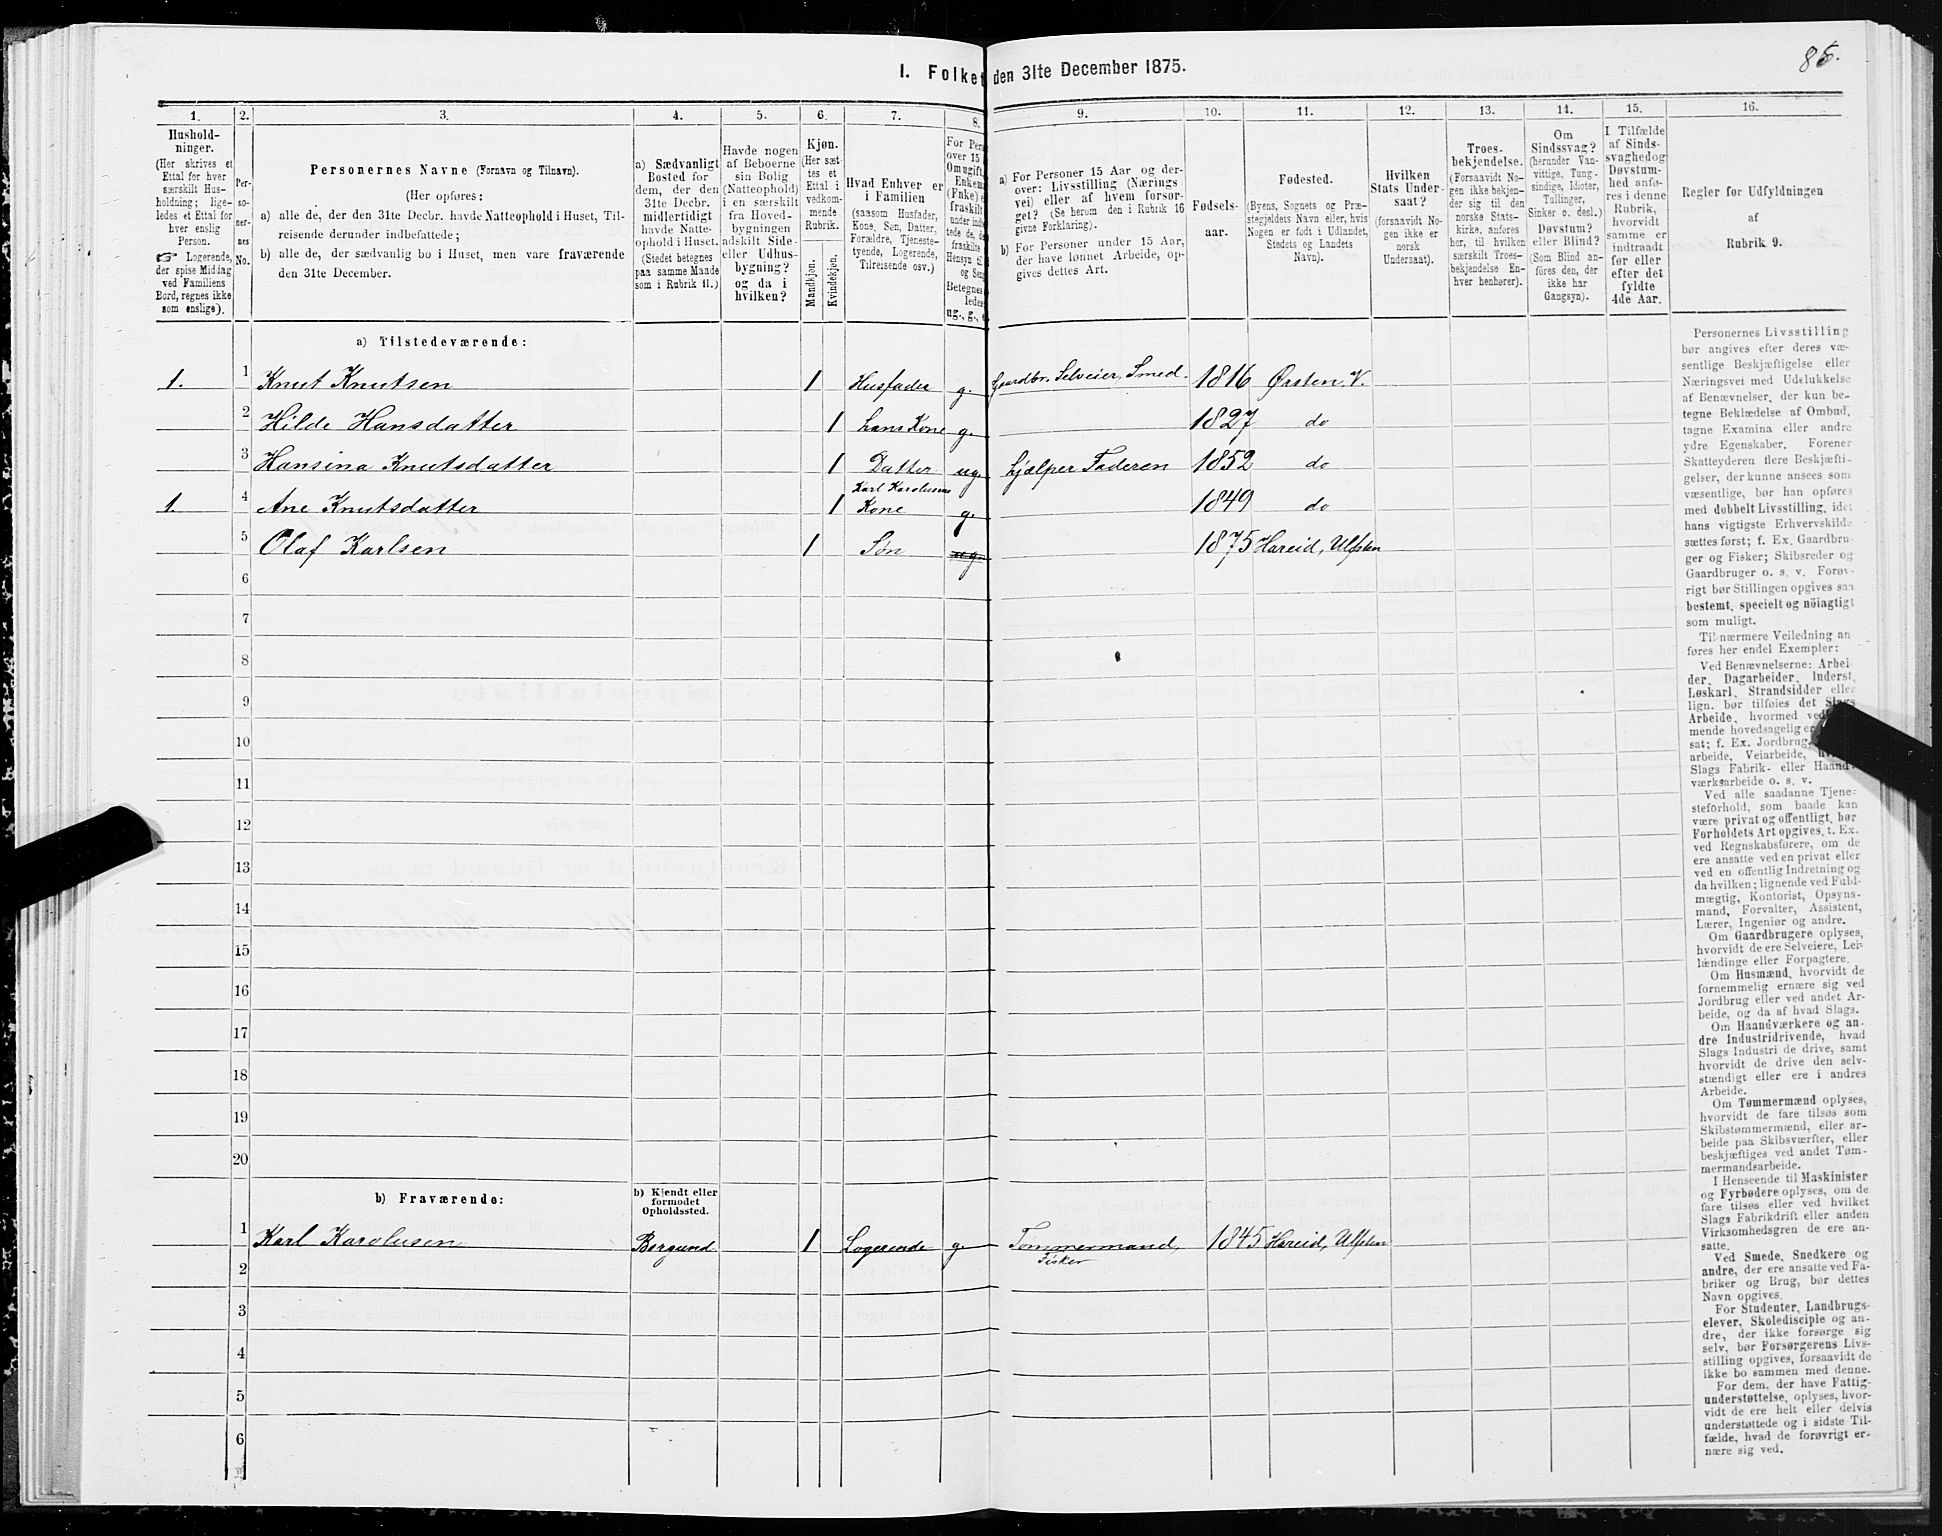 86.
I. Folket den 31te December 1875.
1. 2. 3. 4. 5. 6. 7. 8. 9. 10. 11. 12. 13. 14. 15. 16.
Hushold-
ninger.
(Her skrives et
Ettal for hver
særskilt Hus-
holdning; lige-
ledes et Ettal for
hver enslig
Person.
☞ Logerende,
der spise Middag
ved Familiens
Bord, regnes ikke
som enslige).
Per-
so-
ner-
nes
No.
Personernes Navne (Fornavn og Tilnavn).
(Her opføres:
a) alle de, der den 31te Decbr. havde Natteophold i Huset, Til-
reisende derunder indbefattede;
b) alle de, der sædvanlig bo i Huset, men vare fraværende
den 31te December.
a) Sædvanligt
Bosted for
dem, der den
31te Decbr.
midlertidigt
havde Natte-
ophold i Huset.
(Stedet betegnes
paa samme Maade
som i Rubrik 11.)
Havde nogen
af Beboerne
sin Bolig
(Natteophold)
i en særskilt
fra Hoved-
bygningen
adskilt Side-
eller Udhus-
bygning?
og da i
hvilken?
Kjøn.
(Her sæt-
tes et
Ettal i
vedkom-
mende
Rubrik.
Mandkjøn.
Kvindekjøn.
Hvad Enhver er
i Familien
(saasom Husfader,
Kone, Søn, Datter,
Forældre, Tjeneste-
tyende, Logerende,
Tilreisende osv.)
For Pers
over 15
Om ugift,
Enkem
(Fnke) e
fraskilt
under indb
tede de,
fraskilte
Hensyn til
og Sen
Betegnes
ledes
ug., g., e
a) For Personer 15 Aar og der-
over: Livsstilling (Nærings
vei) eller af hvem forsør-
get? (Se herom den i Rubrik 16
givne Forklaring).
b) For Personer under 15 Aar,
der have lønnet Arbeide, op-
gives dettes Art.
Fødsels-
aar.
Fødested.
(Byens, Sognets og Præ-
stegjeldets Navn eller, hvis
Nogen er født i Udlandet,
Stedets og Landets
Navn).
Hvilken
Stats Under-
saat?
(forsaavidt No-
gen ikke er
norsk
Undersaat).
Troes-
bekjendelse.
(Forsaavidt No-
gen ikke bekjen-
der sig til den
norske Stats-
kirke, anføres
her, til hvilken
særskilt Troes-
bekjendelse En-
hver henhører).
Om
Sindssvag?
(herunder Van-
vittige, Tung-
sindige, Idioter,
Tullinger,
Sinker o. desl.)
Døvstum?
eller Blind?
(Som Blind an-
føres den, der
ikke har
Gangsyn).
I Tilfælde
af Sinds-
svaghedog
Døvstum-
hed anfø-
res i denne
Rubrik,
hvorvidt
samme er
indtraadt
før eller
efter det
fyldte
4de Aar.
Regler for Udfyldningen
af
Rubrik 9.
a) Tilstedeværende:
1. 1 Knut Knutsen 1 Husfader g. Gaardbr. Selveier, Smed. 1816 Ørsten, V.
2 Hilde Hansdatter 1 hans Kone g. 1827 do
3 Hansina Knutsdatter 1 Datter ug. hjælper Faderen 1852 do
1. 4 Ane Knutsdatter 1 Karl Karolusens
Kone g. 1849 do
5 Olaf Karlsen 1 Søn ug. 1875 Hareid, Ulfsten
6
7
8
9
10
11
12
13
14
15
16
17
18
19
20
b) Fraværende:
b) Kjendt eller
formodet
Opholdssted.
1 Karl Karolusen Borgund 1 Logerende g. Tømmermand, 1845 Hareid, Ulfsten
Fisker
2
3
4
5
6
Personernes Livsstilling
bør angives efter deres væ-
sentlige Beskjæftigelse eller
Næringsvei med Udelukkelse
af Benævnelser, der kun be-
tegne Beklædelse af Ombud,
tagne Examina eller andre
ydre Egenskaber. Forener
Skatteyderen flere Beskjæfti-
gelser, der kunne ansees som
væsentlige, bør han opføres
med dobbelt Livsstilling, idet
hans vigtigste Erhvervskilde
sættes først; f. Ex. Gaardbru-
ger og Fisker; Skibsreder og
Gaardbruger o. s. v. Forøv-
rigt bør Stillingen opgives saa
bestemt, specielt og nøiagtigt
som muligt.
Til nærmere Veiledning an
føres her endel Exempler:
Ved Benævnelserne: Arbei-
der, Dagarbeider, Inderst,
Løskarl, Strandsidder eller
lign. bør tilføies det Slags
Arbeide, hvormed ved
mende hovedsagelig er
sat; f. Ex. Jordbrug,
arbeide, Veiarbeide,
Slags Fabrik- eller Haand-
værksarbeide o. s. v.
Ved alle saadanne Tjene-
steforhold, som baade kan
være privat og offentligt, bør
Forholdets Art opgives, t. Ex.
ved Regnskabsførere, om de
ere ansatte ved en privat eller
ved en offentlig Indretning og
da hvilken; lignende ved Fuld-
mægtig, Kontorist, Opsyns-
mand, Forvalter, Assistent,
Lærer, Ingeniør og andre.
Om Gaardbrugere oplyses,
hvorvidt de ere Selveiere, Lei-
lændinge eller Forpagtere.
Om Husmænd, hvorvidt de
fornemmelig ernære sig ved
Jordbrug eller ved andet Ar-
beide, og da af hvad Slags.
Om Haandværkere og an-
dre Industridrivende, hvad
Slags Industri de drive, samt
hvorvidt de drive den selv-
stændigt eller ere i andres
Arbeide.
Om Tømmermænd oplyses,
hvorvidt de fare tilsøs som
Skibstømmermænd, eller ar-
beide paa Skibsværfter, eller
beskjæftiges ved andet Tøm-
mermandsarbeide.
I Henseende til Maskinister
og Fyrbødere oplyses, om de
fare tilsøs eller ved hvilket
Slags Fabrikdrift eller anden
Virksomhedsgren de ere an-
satte.
Ved Smede, Snedkere og
andre, der ere ansatte ved Fa-
briker og Brug, bør dettes
Navn opgives.
For Studenter, Landbrugs-
elever, Skoledisciple og an-
dre, der ikke forsørge sig
selv, bør Forsørgerens Livs-
stilling opgives, forsaavidt de
ikke bo sammen med denne.
For dem, der have Fattig-
understøttelse, oplyses, hvor-
vidt de ere helt eller delvis
understøttede og i sidste Til-
fælde, hvad de forøvrigt er-
nære sig ved.